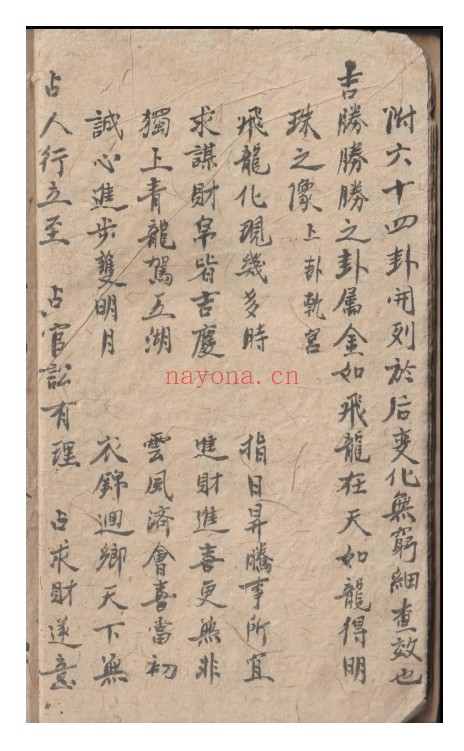 附六十四卦開列於后变化無窮細查效也
吉勝勝勝之卦属金如飛龍在天如龍得明
珠之像上卦軌宮
飛龍化現幾多時 指日昇騰事所宜
求謀財帛皆吉慶 進財進喜更無非
獨上青龍駕五湖 雲風濟會喜當初
誠心進步雙明月 衣錦迴鄉天下無
占人行立至 占官訟有理 占求財遂意
nayona.cn